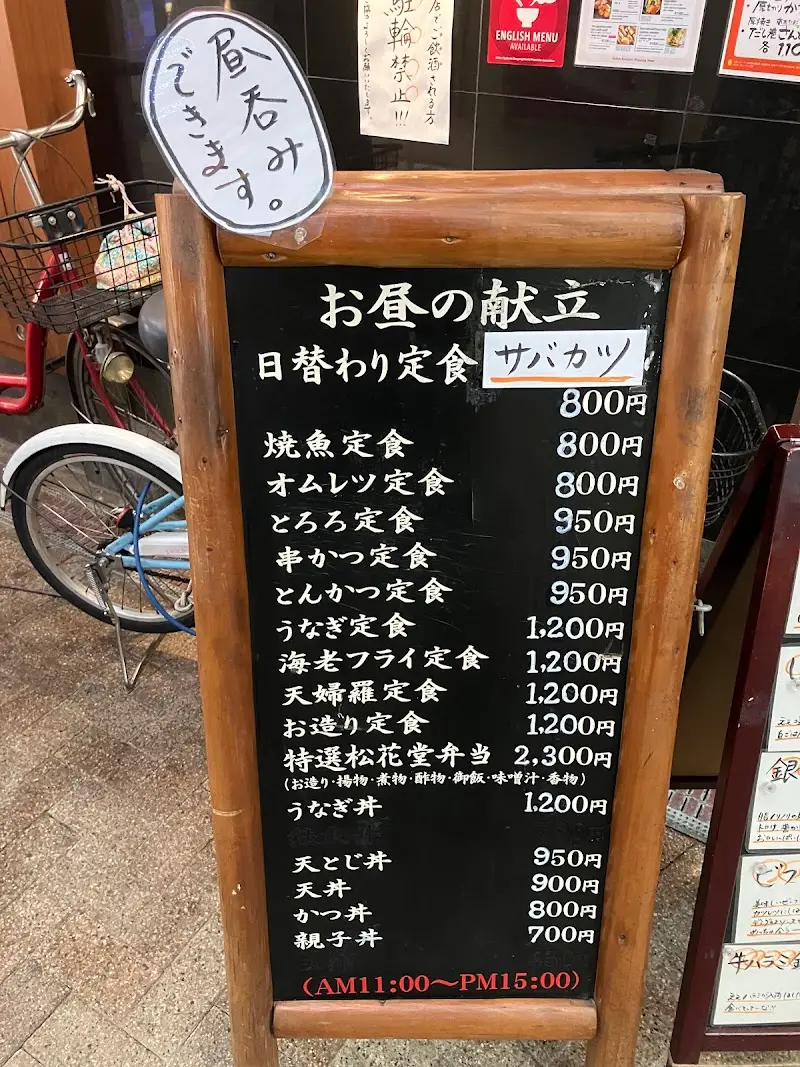 昼呑み
できます。
店でご飲酒される方
駐輪禁止!!!
ENGLISH MENU
AVAILABLE
お昼の献立
日替わり定食 サバカツ
800円
焼魚定食 800円
オムレツ定食 800円
とろろ定食 950円
串かつ定食 950円
とんかつ定食 950円
うなぎ定食 1,200円
海老フライ定食 1,200円
天婦羅定食 1,200円
お造り定食 1,200円
特選松花堂弁当 2,300円
(お造り・揚物・煮物・酢物・御飯・味噌汁・香物)
うなぎ丼 1,200円
天とじ丼 950円
天丼 900円
かつ丼 800円
親子丼 700円
(AM11:00〜PM15:00)